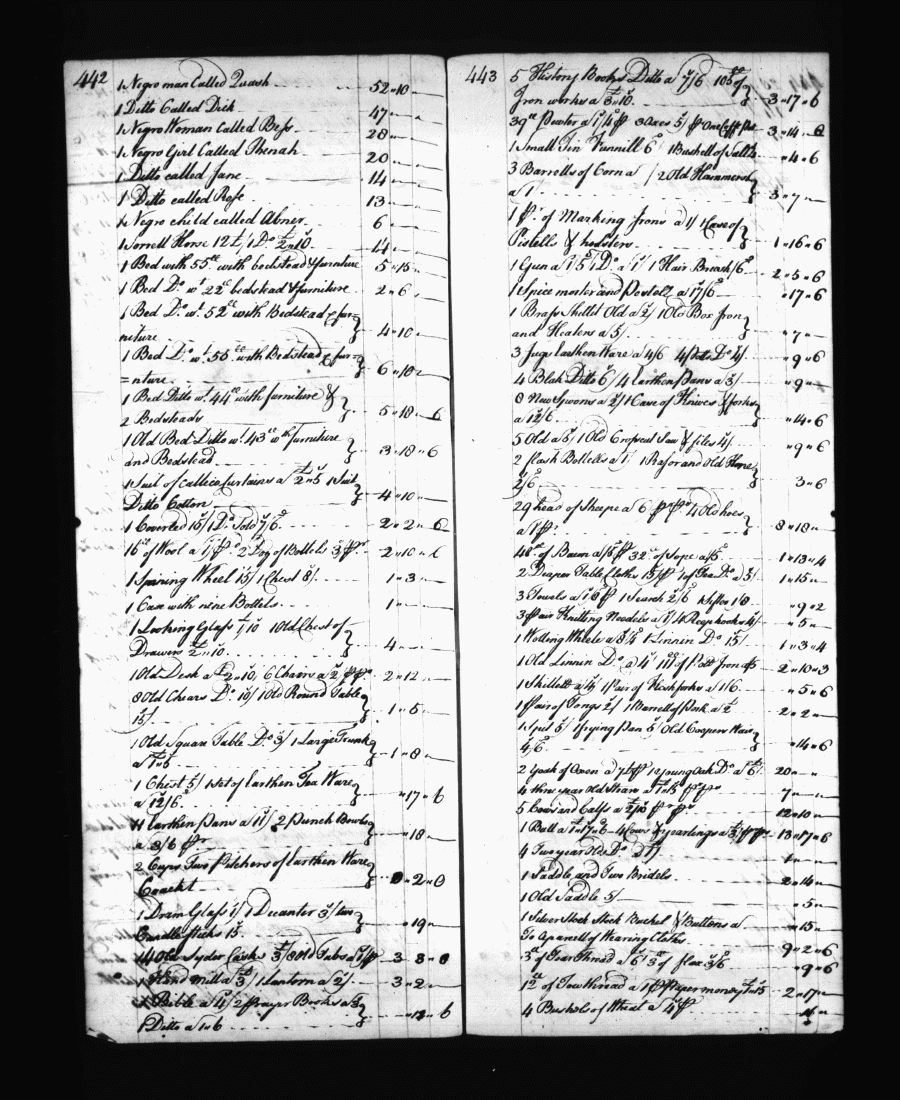 442
1 Negro man Called Quash 52 " 10 "
1 Ditto Called Dick 47 "
1 Negro Woman Called Bess 28 "
1 Negro Girl Called Phenah 20 "
1 Ditto called Jane 14 "
1 Ditto called Rose 13 "
1 Negro child called Abner 6 "
1 Sorrell Horse 12£/ 1 Do £2 " 10 14 "
1 Bed with 55 wt with bedstead & furniture 5 " 15 "
1 Bed Do wt 22 bedstead & furniture 2 " 6 "
1 Bed Do wt 52 with Bedstead & fur-
niture 4 " 10 "
1 Bed Do wt 55 with Bedstead & fur=
=nture 6 " 10 "
1 Bed Ditto wt 44 with furniture &
2 Bedsteads 5 " 18 " 6
1 Old Bed Ditto wt 43 wth furniture
and Bedstead 3 " 18 " 6
1 Suit of Callico Curtains a £2 " 5 1 Suit
Ditto Cotton 4 " 10 "
1 Coverled 15/ 1 Do Sold 7/6 2 " 2 " 6
16 of Wool a 1/ 2 Doz of Bottels 3/ 2 " 10 "
1 Spining Wheel 15/ 1 Chest 8/ 1 " 3 "
1 Case with nine Bottels 1 "
1 Looking Glass 1 " 10 1 Old Chest of
Drawers £2 " 10 4 "
1 Old Desk a £2 " 10, 6 Chairs a 2 2 " 12 "
8 Old Chears Do 10/ 1 Old Round Table
15/ 1 " 5 "
1 Old Square Table Do 3/ 1 Large Trunk
a £1 " 5 1 " 8 "
1 Chest 5/ 1 Set of Earthen Tea Ware
a 12/6 " 17 " 6
11 Earthen Pans a 11/ 2 Punch Bowls
a 3/6 " 18 "
2 Cups Two Pitchers of Earthen Ware
Crackt 0 " 2 " 0
1 Dram Glass 1/ 1 Decanter 3/ two
Candlesticks 15 " 19 "
14 Old Syder Casks 8 Old Tubs 3 " 8 " 0
1 Hand Mill a £3/ 1 Lantern a 2/ 3 " 2 "
1 Bible a 4/ 2 Prayr Books a 3
1 Ditto a 1 " 6
443
5 History Books Ditto a 7/6 105 of
Iron works a £3 " 10 3 " 17 " 6
37 Pewter a 1/4 3 Axes 5/ 3 " 14 " 8
1 Small Tin Funnill 6 1 Bushell of Salt " 4 " 6
3 Barrolls of Corn a / 2 Old Hammers
a 1 3 " 7 "
1 pr of Marking Irons a 1/ 1 Case of
Pistolls & holsters 1 " 16 " 6
1 Gun a 1 Do a 1 Hair Broash /6 2 " 5 " 6
1 Spice morter and Pestell a 17/6 " 17 " 6
1 Brass Skillit Old a 2/ 1 Old Box Iron
and Heaters a 5/ " 7 "
3 Jugs Earthen Ware a 4/6 4 Potts Do 4/ " 9 " 6
4 Blak Ditto 6/ 4 Earthen Pans a 3/ " 9 "
8 New Spoons a 2/ 1 Case of Knives & forks
a 12/6 " 14 " 6
5 Old a 5/ 1 Old Croscut Saw & files 4/ " 9 " 6
2 flask Bottells a 1/ 1 Rasor and Old Hone
2/6 3 " 6
29 head of Sheepe a 6 4 Old hoes
a 1 8 " 18 "
48 of Bacon a /6 32 of Sope a /5 1 " 13 " 4
2 Diaper Table Cloths 15/ 1 of Tea Do a 5/ 1 " 15 "
3 Towels a 1/8 1 Search 2/6 1 Sifter 1/8 " 9 " 2
3 pair Knitting Needels a 1/ 4 Reep hooks 4/ " 5 "
1 Wolling Whele a 8/4 1 Linnin Do 15/ 1 " 3 " 4
1 Old Linnin Do a 4 of Pott Iron 2 " 10 " 3
1 Skillett a 4/ 1 Pair of flesh forks a 1/6 " 5 " 6
1 Pair of Tongs 2/ 1 Barrell of Pork a 2 2 " 2 "
1 Spit 5/ 1 frying Pan 5/ Old Coopers Ware
4/6 " 14 " 6
2 Yoak of Oxen a 7£ 1 young Oak Do a £6 20 " "
4 three year old Stears a £1 " 15 7 "
5 Cows and Calfs a £2/10 12 " 10 "
1 Bull a £1 " 17 " 6 4 Cows & yearlings a £3/ 13 " 17 " 6
4 Two year Olds Do
1 Saddle and Two Bridels 2 " 14 "
1 Old Saddle 5/ " 5 "
1 Silver Stock Buckel & Buttons a " 15 "
To a parcell of Wearing Clothes 9 " 2 " 6
3 of Tear Thread a 6 3 of flax 3/6 " 9 " 6
12 of Tow thread a 1 Paper money £1 " 15 2 " 17 "
4 Bushels of Wheat a 4